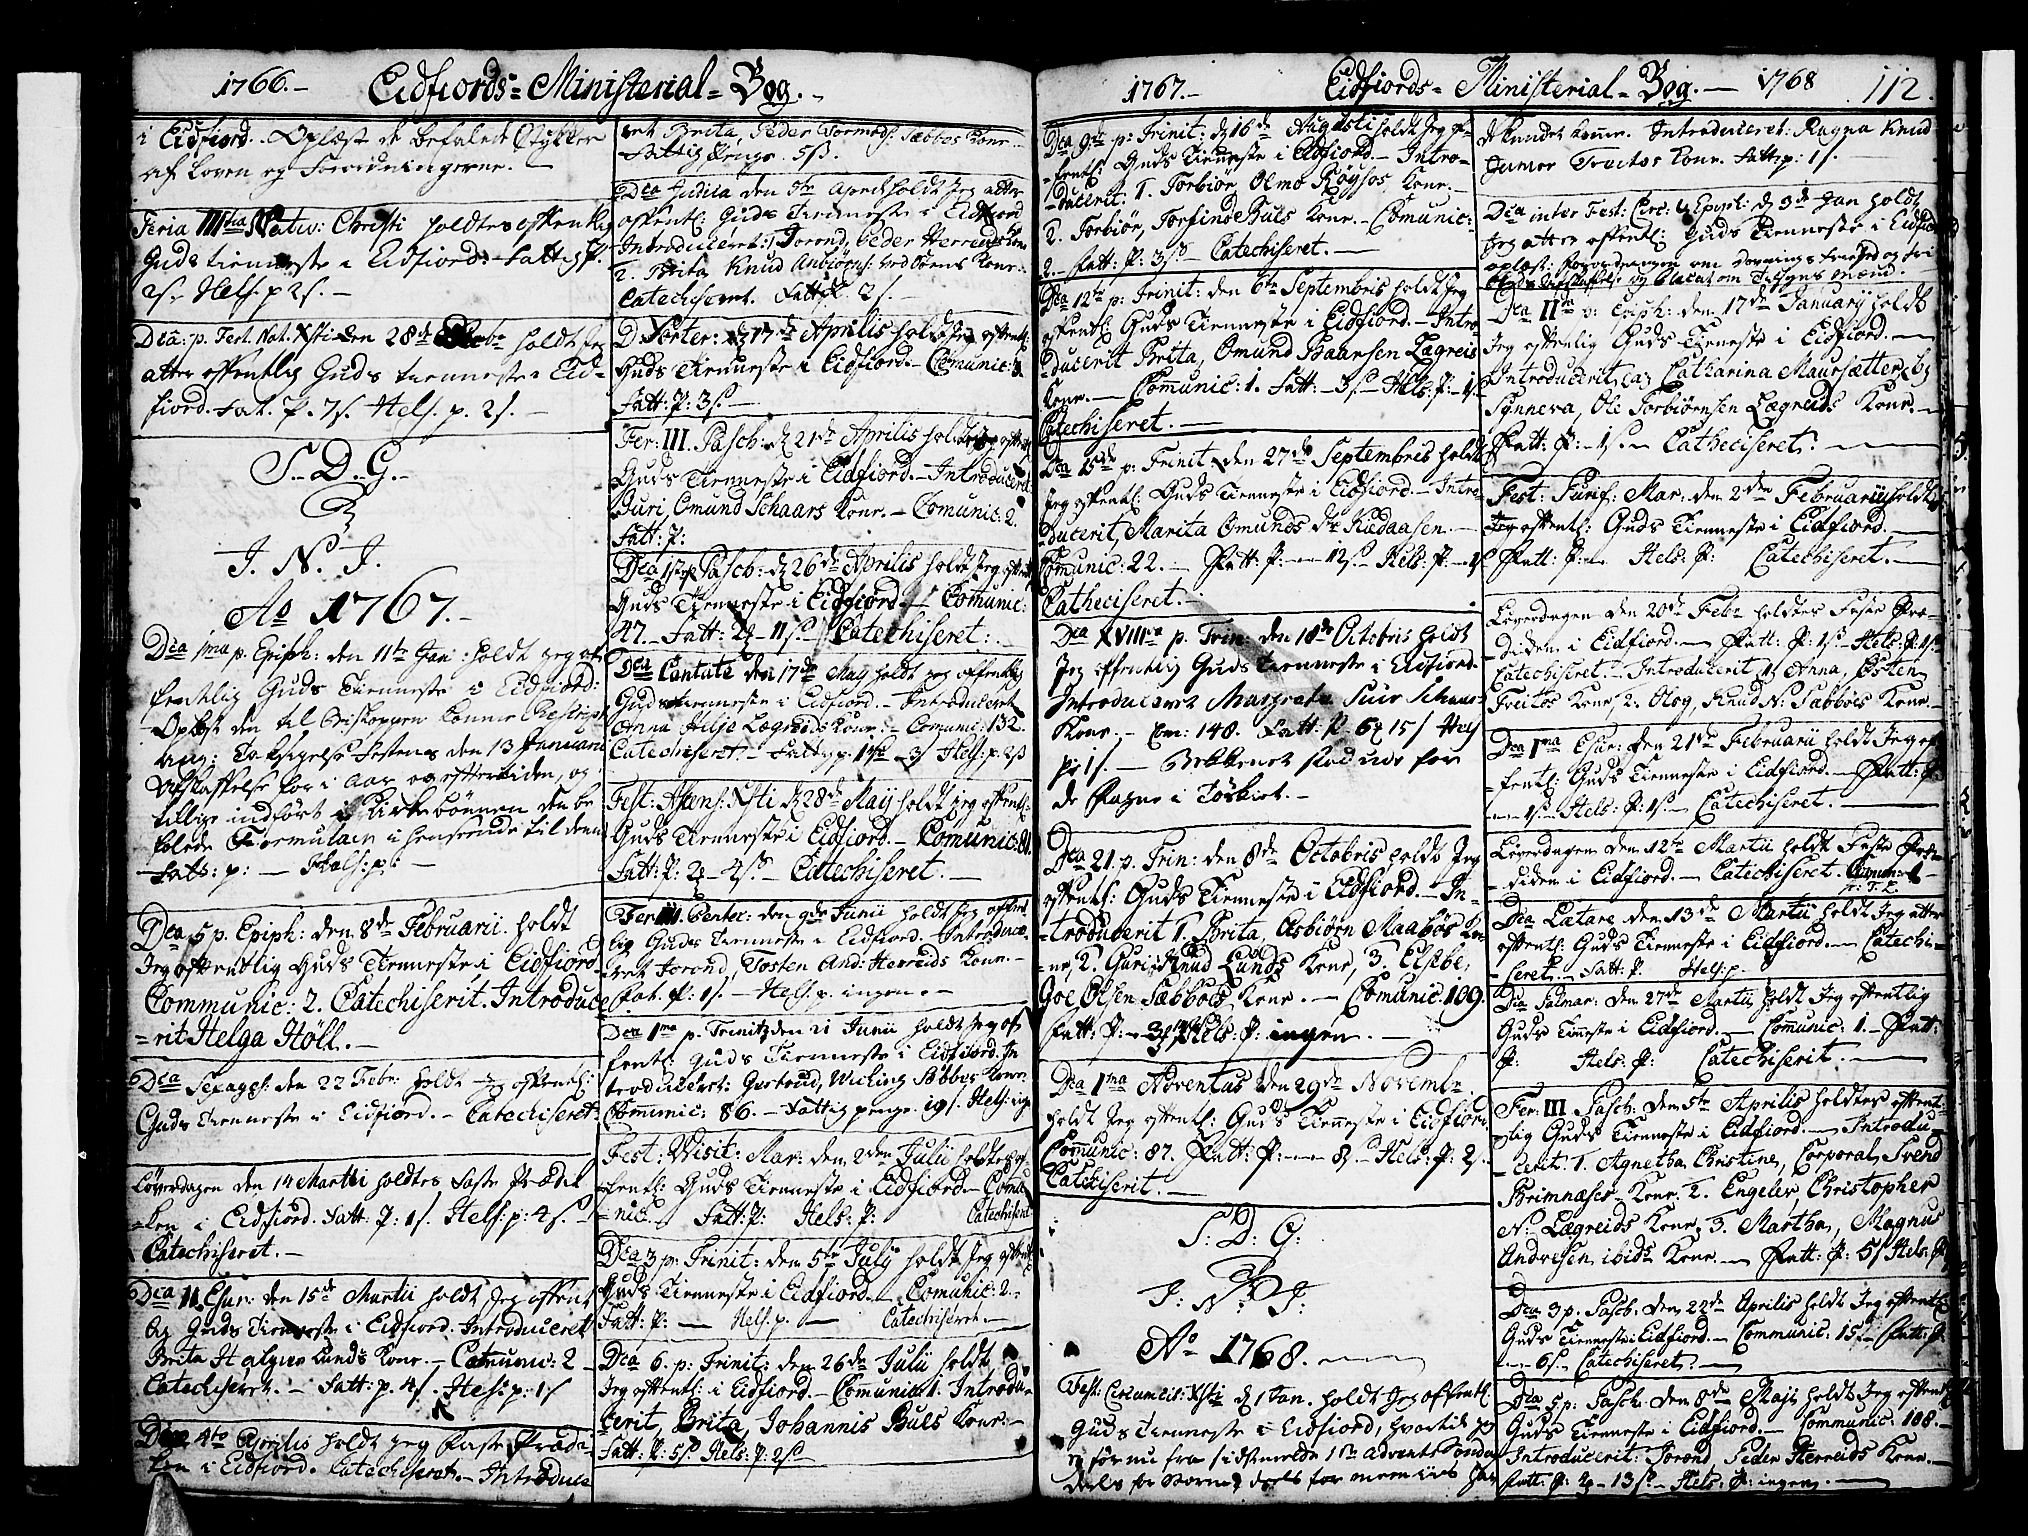 1766.- Eidfiords=Ministerial=Bog.-
i Eidfiord. Oplæst de befalede Stykker
af Loven og Forordningerne.-
Feria IIItia Nativ: Christi holdtes offentlig
Guds tienneste i Eidfiord.- Fattig P.
2s. Hels. p 2s.-
Dca: p. Fest. Nat. Xsti den 28de holdt Jeg
atter offentlig Guds tienneste i Eid-
fiord. Fat. P. 7s. Hels. p. 2s.-
S.D.G.-
J. N. J.
Ao 1767.-
Dca 1ma p. Epiph: den 11te Jan: holdt jeg of
fentlig Guds Tienneste i Eidfiord:
Festens den 13 Januarii
Afskaffelse for i Aar og eftertiden, og
tillige indført i Kirkebønnen den be
falede Formular i henseende til den
Fatt: p: - Hels: p: -
Dca 5 p. Epiph: den 8de Februarii holdt
Jeg offentlig Guds Tienneste i Eidfiord
Communic: 2. Catechiserit. Introduce
=rit Helga Höll.-
Dca Sexages: den 22 Febr: holdt Jeg offentl:
Guds Tienneste i Eidfiord.- Catechiseret.
Løverdagen den 14 Martii holdtes Faste Prædi
=ken i Eidfiord. Fatt: P: 1s. Hels: p: 4s.
Catechiseret.-
Dca Esur: den 15de Martii holdt Jeg offent
lig Guds Tienneste i Eidfiord. Introduceret
Brita Lunds Kone.- Comunic: 2-
Catechiseret.- Fatt: p: 4s. Hels: p: 1s
4te Aprilis holdt jeg Faste Prædi
ken i Eidfiord. Catechiseret.- Introduce
ret Brita, Peder Tormods: Sæbbøs Kone.-
Fattig Penge. 5s.
Dca Judica den 5te April holdt Jeg atter
offentl: Guds Tienneste i Eidfiord
Introduceret: 1 Jorond, Peder Herreids Kone
2. Brita Knud Kone.-
Catechiseret. Fatt: P. 2s.-
17de Aprilis holdt Jeg offentl:
Guds Tienneste i Eidfiord.- Comunic:
Fatt: P: 3s.-
Fer: III. Pasch: d 21de Aprilis holdt Jeg offentl:
Guds Tienneste i Eidfiord.- Introduceret
Guri, Omund Schaars Kone.- Comunic: 2.
Fatt: P:
Dca 1st p Pasch: d 26de Aprilis holdt Jeg offentl
Guds Tienneste i Eidfiord.- Comunic:
47.- Fatt: 2 - 11s Catechiseret:-
Dca Cantate den 17de May holdt jeg offentlig
Guds tienneste i Eidfiord.- Introduceret
Anna Helje Lægreids Kone.- Comunic: 132.
Catechiseret.- Fattig p. - 3s Hels: p. 2s
Fest: Ascens: Xsti d 28de Maij holdt jeg offentl:
Guds Tienneste i Eidfiord.- Comunic: 81.
Fatt: P: 2 - 4s.- Catechiseret.-
Fer III. Pentec: den 9de Junii holdt Jeg offent
lig Guds Tienneste i Eidfiord. Introduce-
ret Jorond, Tosten And: Herreids Kone.-
Fat. P: 1s.- Hels: p. ingen.-
Dca 1ma p. Trinit: den 21 Junii holdt Jeg of
fentl: Guds Tienneste i Eidfiord. In
troduceret: Gertrud, Wiching Sæbbøs Kone.
Communic: 86.- Fattig penge 19s. Hels: ing
Fest: Visit: Mar: den 2den Julii holdtes of-
=fentl: Guds Tienneste i Eidfiord.- Comu
=nic. Fatt: P: Hels: P: Catechiseret
Dca 3 p: Trinit: den 5te July holdt Jeg offentl
Guds Tienneste i Eidfiord.- Comunic: 2.-
Fatt: P: - Hels: p. - Catechiseret.-
Dca 6. p: Trinit: den 26de Julii holdt
Jeg offentl: i Eidfiord.- Comunic: 1. Introdu=
cerit, Brita, Johannis Buls Kone.-
Fatt: P: 5s Hels: P: 2s-
1767.- Eidfiords=Ministerial=Bog.- 1768 112.
Dca 9de p: Trinit: d 16de Augusti holdt Jeg of-
=fentl: Guds Tienneste i Eidfiord.- Intro-
=ducerit: 1. Torbiør, Olmo Røysos, Kone.-
2. Torbiør, Torfind Buls Kone.- Comunic:
2.- Fatt: P: 3s Catechiseret.-
Dca 12te p: Trinit: den 6te Septembris holdt Jeg
offentl: Guds Tienneste i Eidfiord.- Intro-
=ducerit Brita, Omund Baarsen Lægreis
Kone.- Comunic: 1. Fatt:- 3s.- Hels: P:- 1s-
Catechiseret.-
Dca 15de p: Trinit den 27de Septembris holdt
Jeg offentl: Guds Tienneste i Eidfiord.- Intro
=ducerit, Marita Omunds
Comunic: 22.- Fatt: P:- 12s.- Hels: P:- 1s
Catheciseret.-
Dca XVIIIva p. Trin: den 18de Octobris holdt
Jeg offentlig Guds tienneste i Eidfiord.
Introduceret Margreta Siur Schaars
Kone.- Com: 140. Fatt: P. 6 15s Hels
p: 1s.-
Dca 21. p. Trin: den 8de Octobris holdt Jeg
offentl: Guds Tienneste i Eidfiord.- In-
=troducerit 1. Brita, Asbiörn Maabös Ko-
=ne, 2. Guri, Knud Lunds Kone, 3. Elsebe,
Goe Olsen Sæbböes Kone.- Comunic: 109.
Fatt: P:- Hels: P: ingen.-
Dca 1ma Adventus den 29de Novembr.
holdt Jeg offentl: Guds Tienneste i Eidfiord.
Comunic: 87. Fatt: P:- 8s.- Hels: P: 2s.
Catechiserit.-
S: D: G:
J: N: J:
Ao 1768.
Fest: Circumcis: Xsti d 1 Jan. holdt Jeg offentl.
Guds Tienneste i Eidfiord, hvortil jeg
ej før nu fra sidstmeldte 1ste Advents Søndag
deels for Storm, deels for meenføre har
kundet komme. Introduceret: Ragna Knud
Kone. Fatt: p: 1s.-
Dca inter Fest: Circ: & Epiph: d 3de Jan holdt
Jeg atter offentl: Guds Tienneste i Eidfiord
oplæst: forordningen om
og Placat om
Dca IIda p: Epiph: den 17de Januarij holdt
Jeg offentlig Guds Tienneste i Eidfiord.-
Introducerit, a) Catharina Maursætter, b)
Synneva, Ole Torbiørnsen Lægreids Kone.-
Fatt: P:- 1s.- Catheciseret.-
Fest: Purif: Mar: den 2den Februarii holdt
Jeg offentl: Guds Tienneste i Eidfiord.-
Fatt: P:- Hels: P: Catechiseret.-
Løverdagen den 20de Febr holdtes Faste Præ-
=diken i Eidfiord.- Fatt: P: 1s.- Hels: P: 1s.-
Catechiseret.- Introducerit 1, Anna, Østen
Treitos Kone, 2. Olsg, Knud N: Sæbböes Kone.-
Dca 1ma Esur: den 21de Februarii holdt Jeg of-
=fentl: Guds Tienneste i Eidfiord.- Fatt: P:
- 1s.- Hels: P: 1s.- Catechiseret.-
Løverdagen den 12te Martii holdt Faste Præ-
=diken i Eidfiord.- Catechiseret.
Dca Lætare den 13de Martii holdt Jeg atter
offentl: Guds Tienneste i Eidfiord.- Catechi-
=seret.- Fatt: P. Hels: p.
Dca Palmar: den 27de Martii, holdt Jeg offentlig
Guds Tienneste i Eidfiord.- Comunic: 1.- Fatt:
P: Hels: P: Catechiserit.-
Fer: III Pasch: den 5te Aprilis holdtes offent-
=lig Guds Tienneste i Eidfiord.- Introdu-
=cerit: 1. Agnetha Christine, Corporal Svend
Brimnæses Kone, 2. Engelev, Christopher
N: Lægreids Kone, 3. Martha, Magnus
Andresen ibids Kone.- Fatt: P: 5s Hels: P
Dca 3 p. Pasch. den 22de Aprilis holdt Jeg offentl
Guds Tienneste i Eidfiord.- Communic: 15.- Fatt: P:
- 6s.- Catechiseret.-
Dca 5 p: Pasch. den 8de Maji holdt Jeg offentl
Guds Tienneste i Eidfiord.- Communic: 108.-
Introducerit: Jorond, Peder Herreids Kone.-
Fatt: P: 2 - 13s.- Hels: P: ingen.-